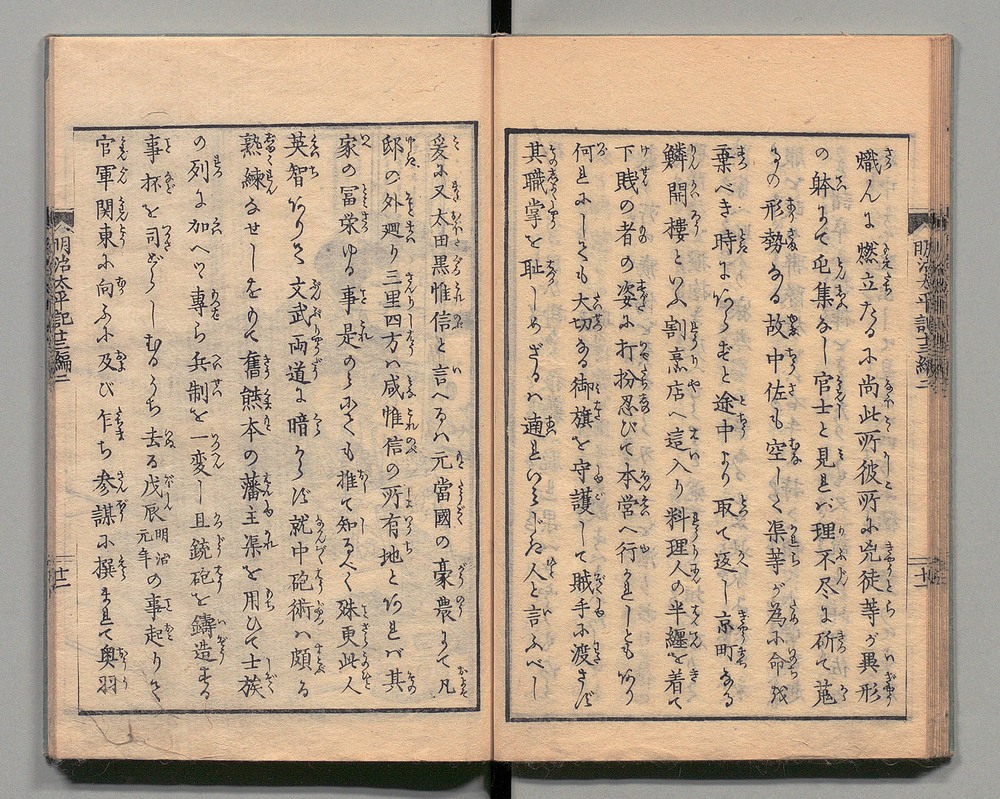 熾んに燃立たるに尚此所彼所に兇徒等が異形
の躰にて屯集なし官士と見れバ理不尽に斫て蒐
るの形勢なる故中佐も空しく渠等が為に命を
棄べき時にあらずと途中より取て返し京町なる
鱗開樓といふ割烹店へ這入り料理人の半纏を着て
下賎の者の姿に打扮忍びて本営へ行れしともあり
何れにしても大切なる御旗を守護して賊手に渡さず
其職掌を耻しめざるハ適れいみじき人と言ふべし
爰に又太田黒惟信と言へるハ元當國の豪農にて凡
邸の外廻り三里四方ハ咸惟信の所有地とあれバ其
家の冨栄ゆる事是のミにても推て知るべく殊更此人
英智ありて文武両道に暗からず就中砲術ハ頗る
熟練なせしをもて舊熊本の藩主渠を用ひて士族
の列に加へつ専ら兵制を一変し且銃砲を鋳造する
事杯を司どらしむるうち去る戊辰明治元年の事起りて
官軍関東に向ふに及び乍ち参謀に撰まれて奥羽
明治太平記十三編二
十一
明治太平記十三編二
十二